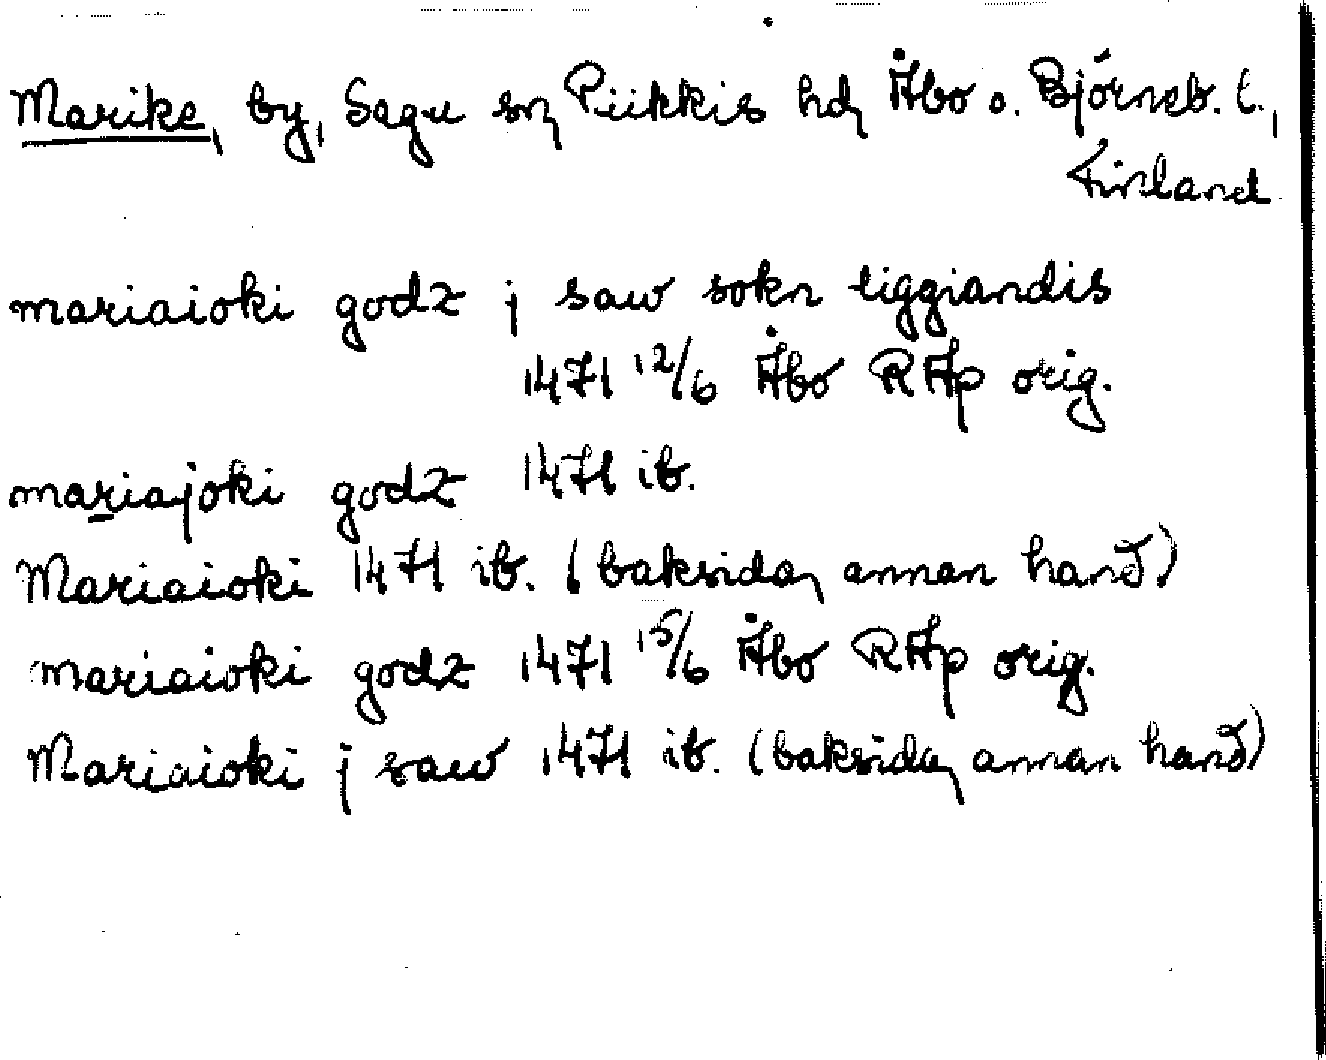 Marike, by, Sagu sn, Piikkis hd, Åbo o. Björneb. l.,
Finland
mariaioki godz j saw sokn liggiandis
1471 12/6 Åbo RAp orig.
mariajoki godz 1471 ib.
Mariaioki 1471 ib. (baksida, annan hand)
mariaioki godz 1471 15/6 Åbo RAp orig.
Mariaioki j saw 1471 ib. (baksida, annan hand)